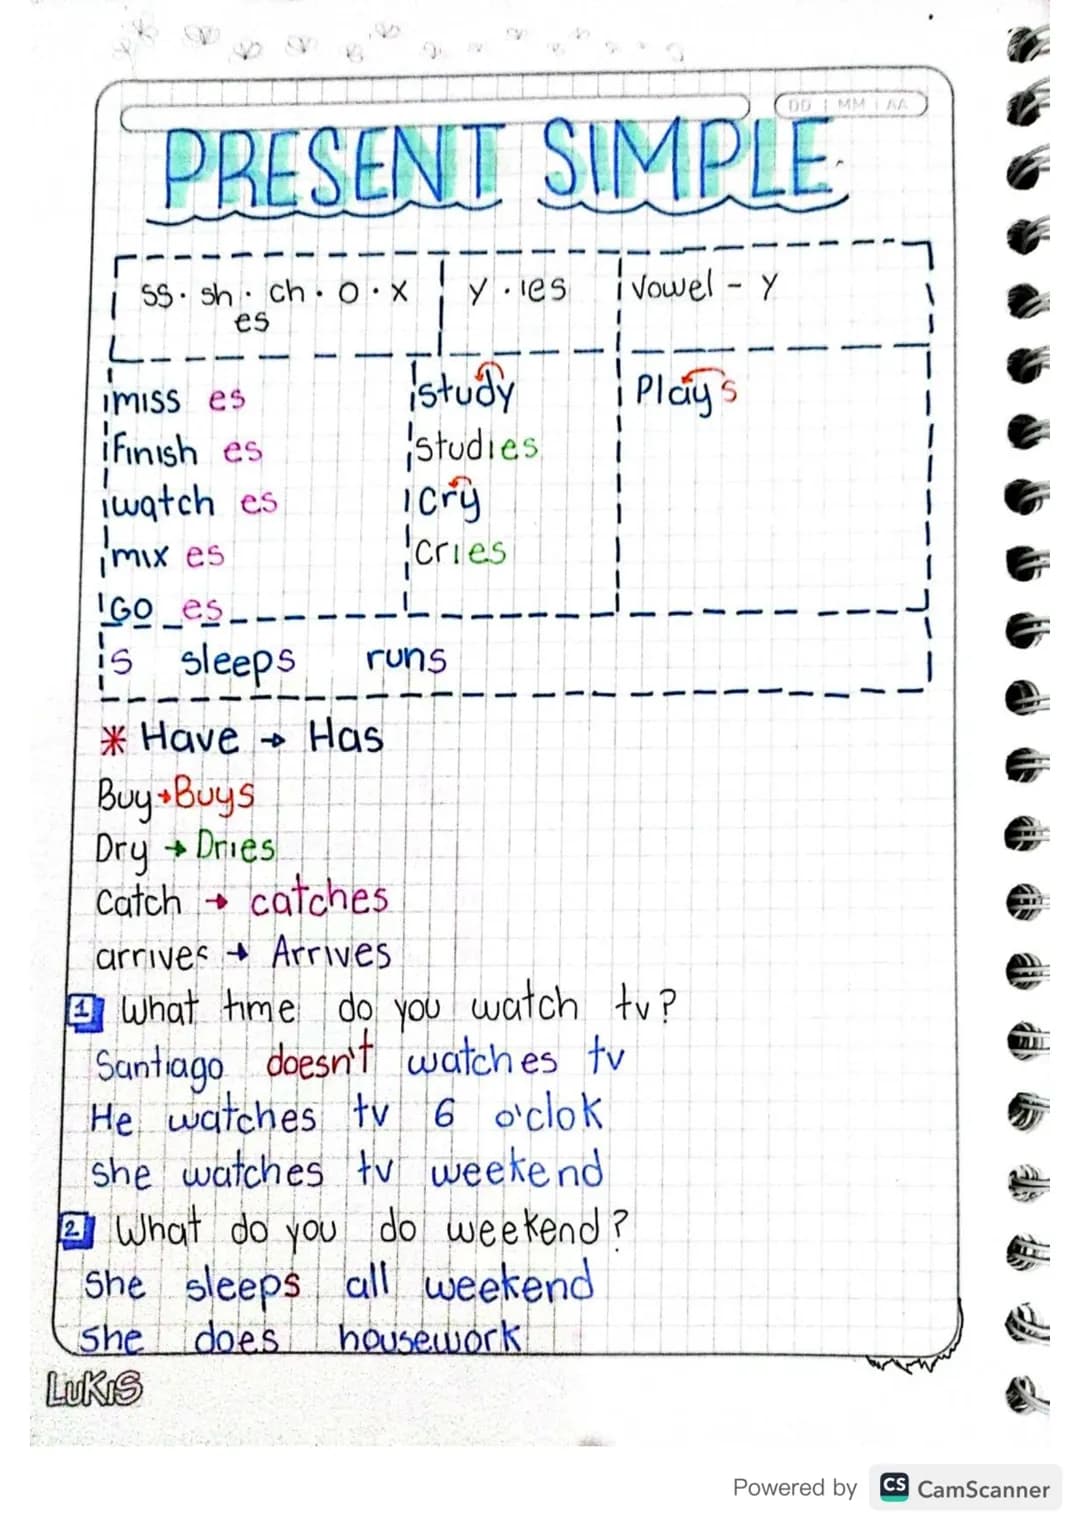 DD MM AA
PRESENT SIMPLE.
ss. sh. ch. o. x
es
y. ies
vowel - y
miss es
Finish es
watch es
mix es
Go es
study
studies
cry
cries
Plays
s sleeps runs
* Have → Has
Buy → Buys
Dry → Dries
Catch → catches
arrives → Arrives
1 What time do you watch tv?
Santiago doesn't watches tv
He watches tv 6 o'clok
she watches tv weekend
2 What do you do weekend?
She sleeps all weekend
she does housework
LUKIS
Powered by CS CamScanner